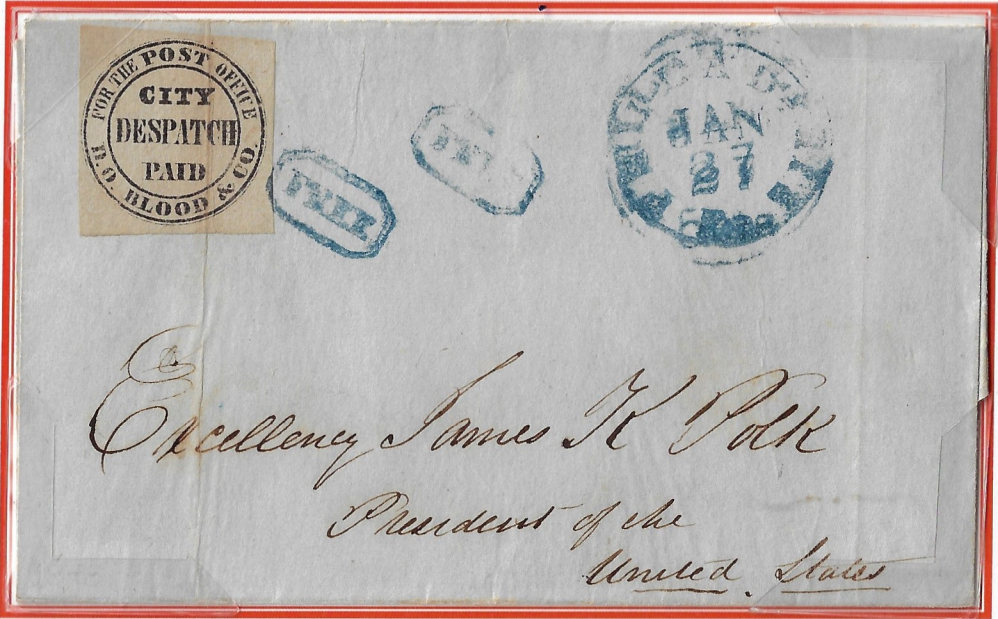 FOR THE POST OFFICE
CITY
DESPATCH
PAID
D.O. BLOOD & CO.
FREE
FRE
PHILADA
JAN
27
5
Excellency James K Polk
President of the
United States